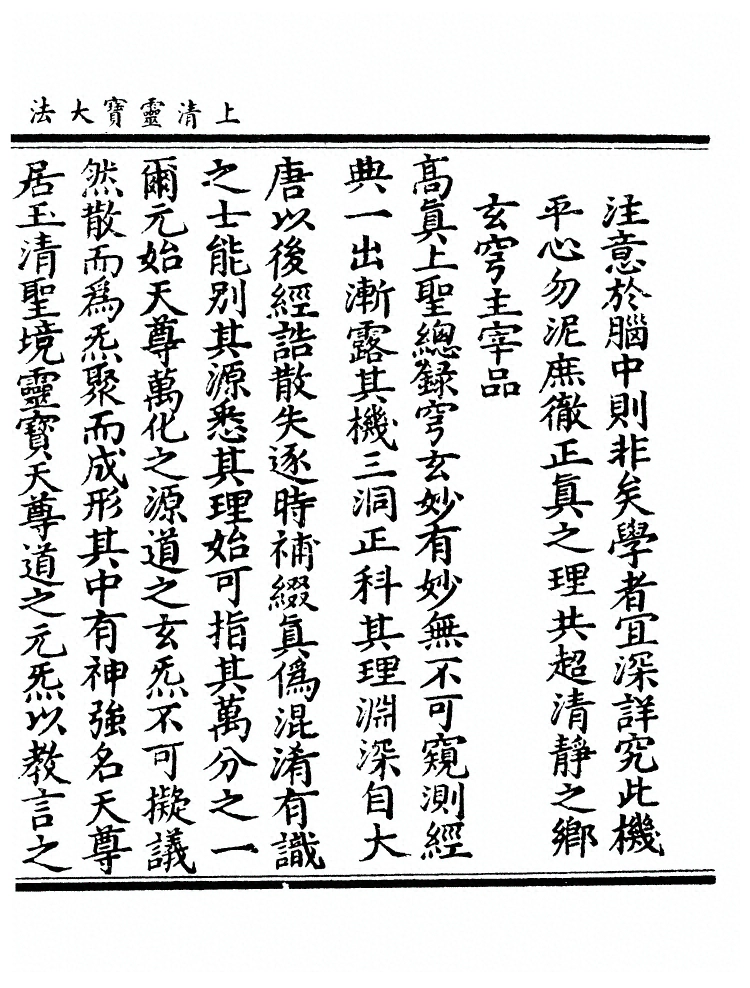 上清靈寶大法
注意於腦中則非矣學者宜深詳究此機
平心勿泥庶徹正眞之理共超清靜之鄉
玄穹主宰品
高眞上聖總錄穹玄妙有妙無不可窺測經
典一出漸露其機三洞正科其理淵深自大
唐以後經誥散失逐時補綴眞僞混淆有識
之士能別其源悉其理始可指其萬分之一
爾元始天尊萬化之源道之玄炁不可擬議
然散而爲炁聚而成形其中有神強名天尊
居玉清聖境靈寶天尊道之元炁以教言之